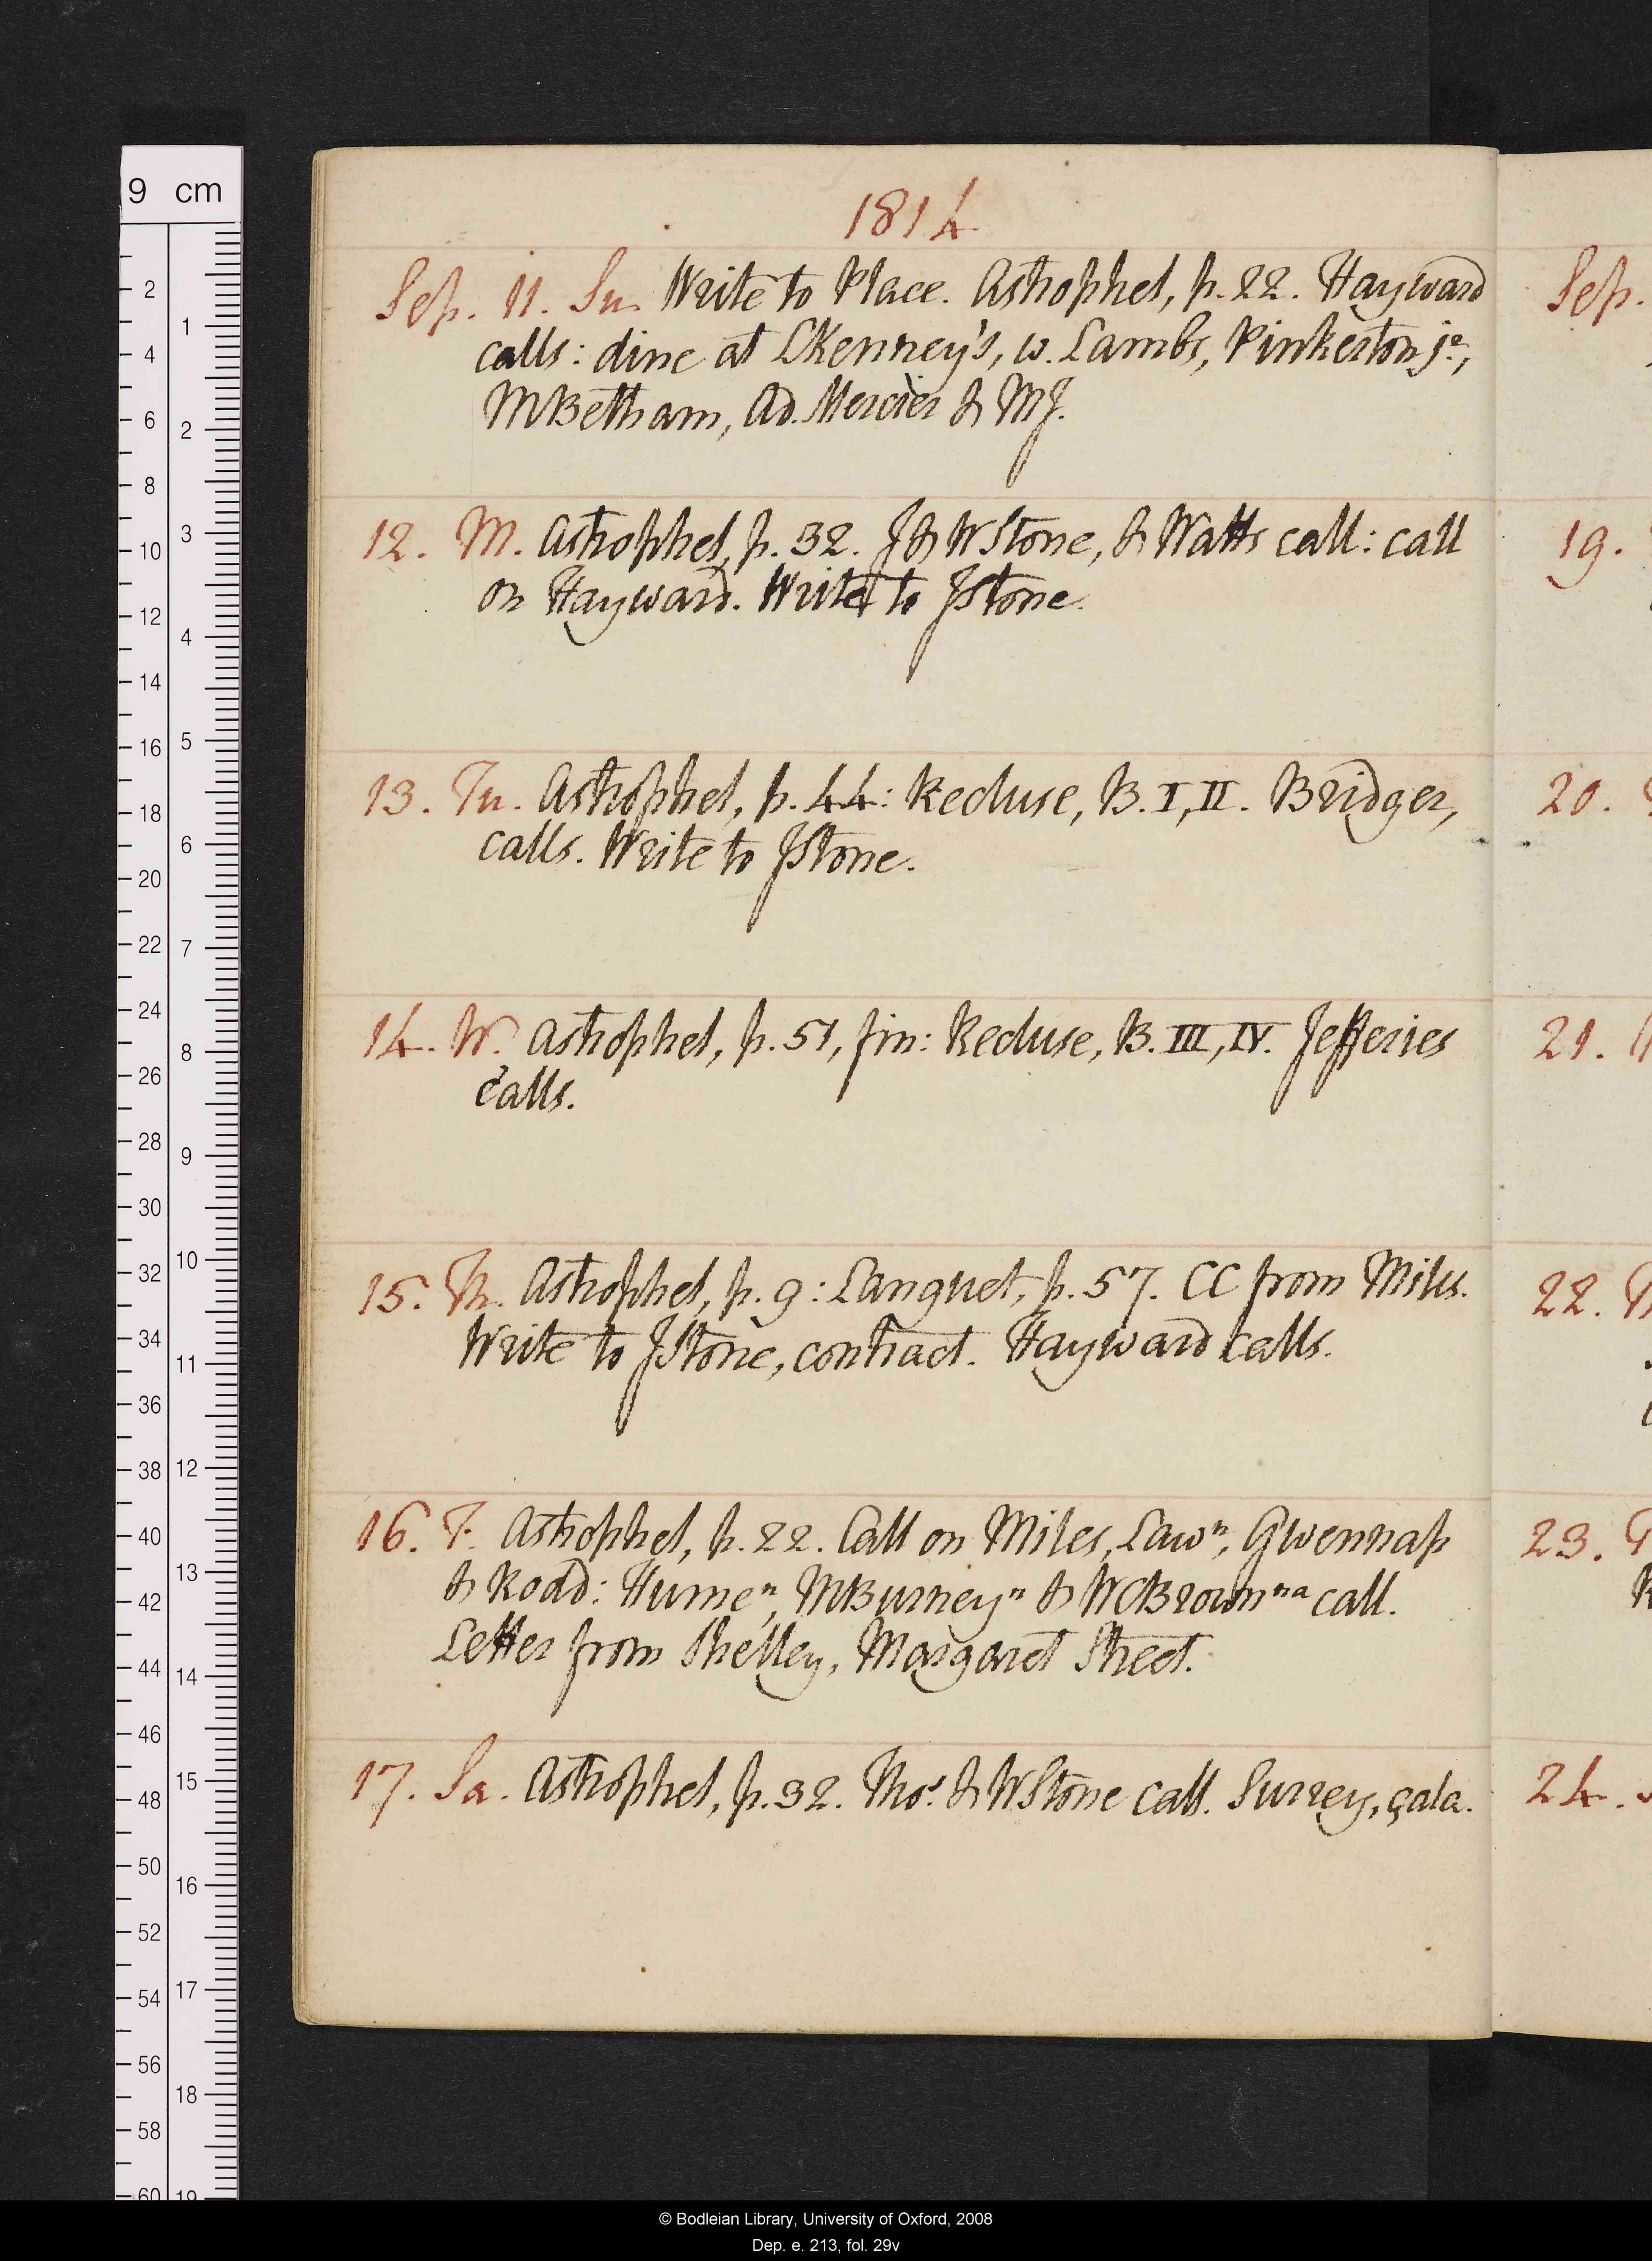 1814
Sep. 11. Su. Write to Place. Astrophel, p. 22. Hayward
calls: dine at LKenney's, w. Lambs, Pinkerton jr,
MBetham, Ad. Mercier & MJ.
12. M. Astrophel, p. 32. J & WStone, & Watts call: call
on Hayward. Write to JStone.
13. Tu. Astrophel, p. 44: Recluse, B. I, II. Bridger,
calls. Write to JStone.
14. W. Astrophel, p. 51, fin: Recluse, B. III, IV. Jefferies
calls.
15. Th. Astrophel, p. 9: Languet, p. 57. CC from Miles.
Write to JStone, contract. Hayward calls.
16. F. Astrophel, p. 22. Call on Miles, Lawn, Gwennap
& Road: Hume n, MBurney n & WCBrown na call.
Letter from Shelley, Margaret Street.
17. Sa. Astrophel, p. 32. Thos. & WStone call. Surrey, çala.
Sep.
19.
20.
21.
22.
23.
24.
9 cm
2
4
6
8
10
12
14
16
18
20
22
24
26
28
30
32
34
36
38
40
42
44
46
48
50
52
54
56
58
60
1
2
3
4
5
6
7
8
9
10
11
12
13
14
15
16
17
18
19
© Bodleian Library, University of Oxford, 2008
Dep. e. 213, fol. 29v